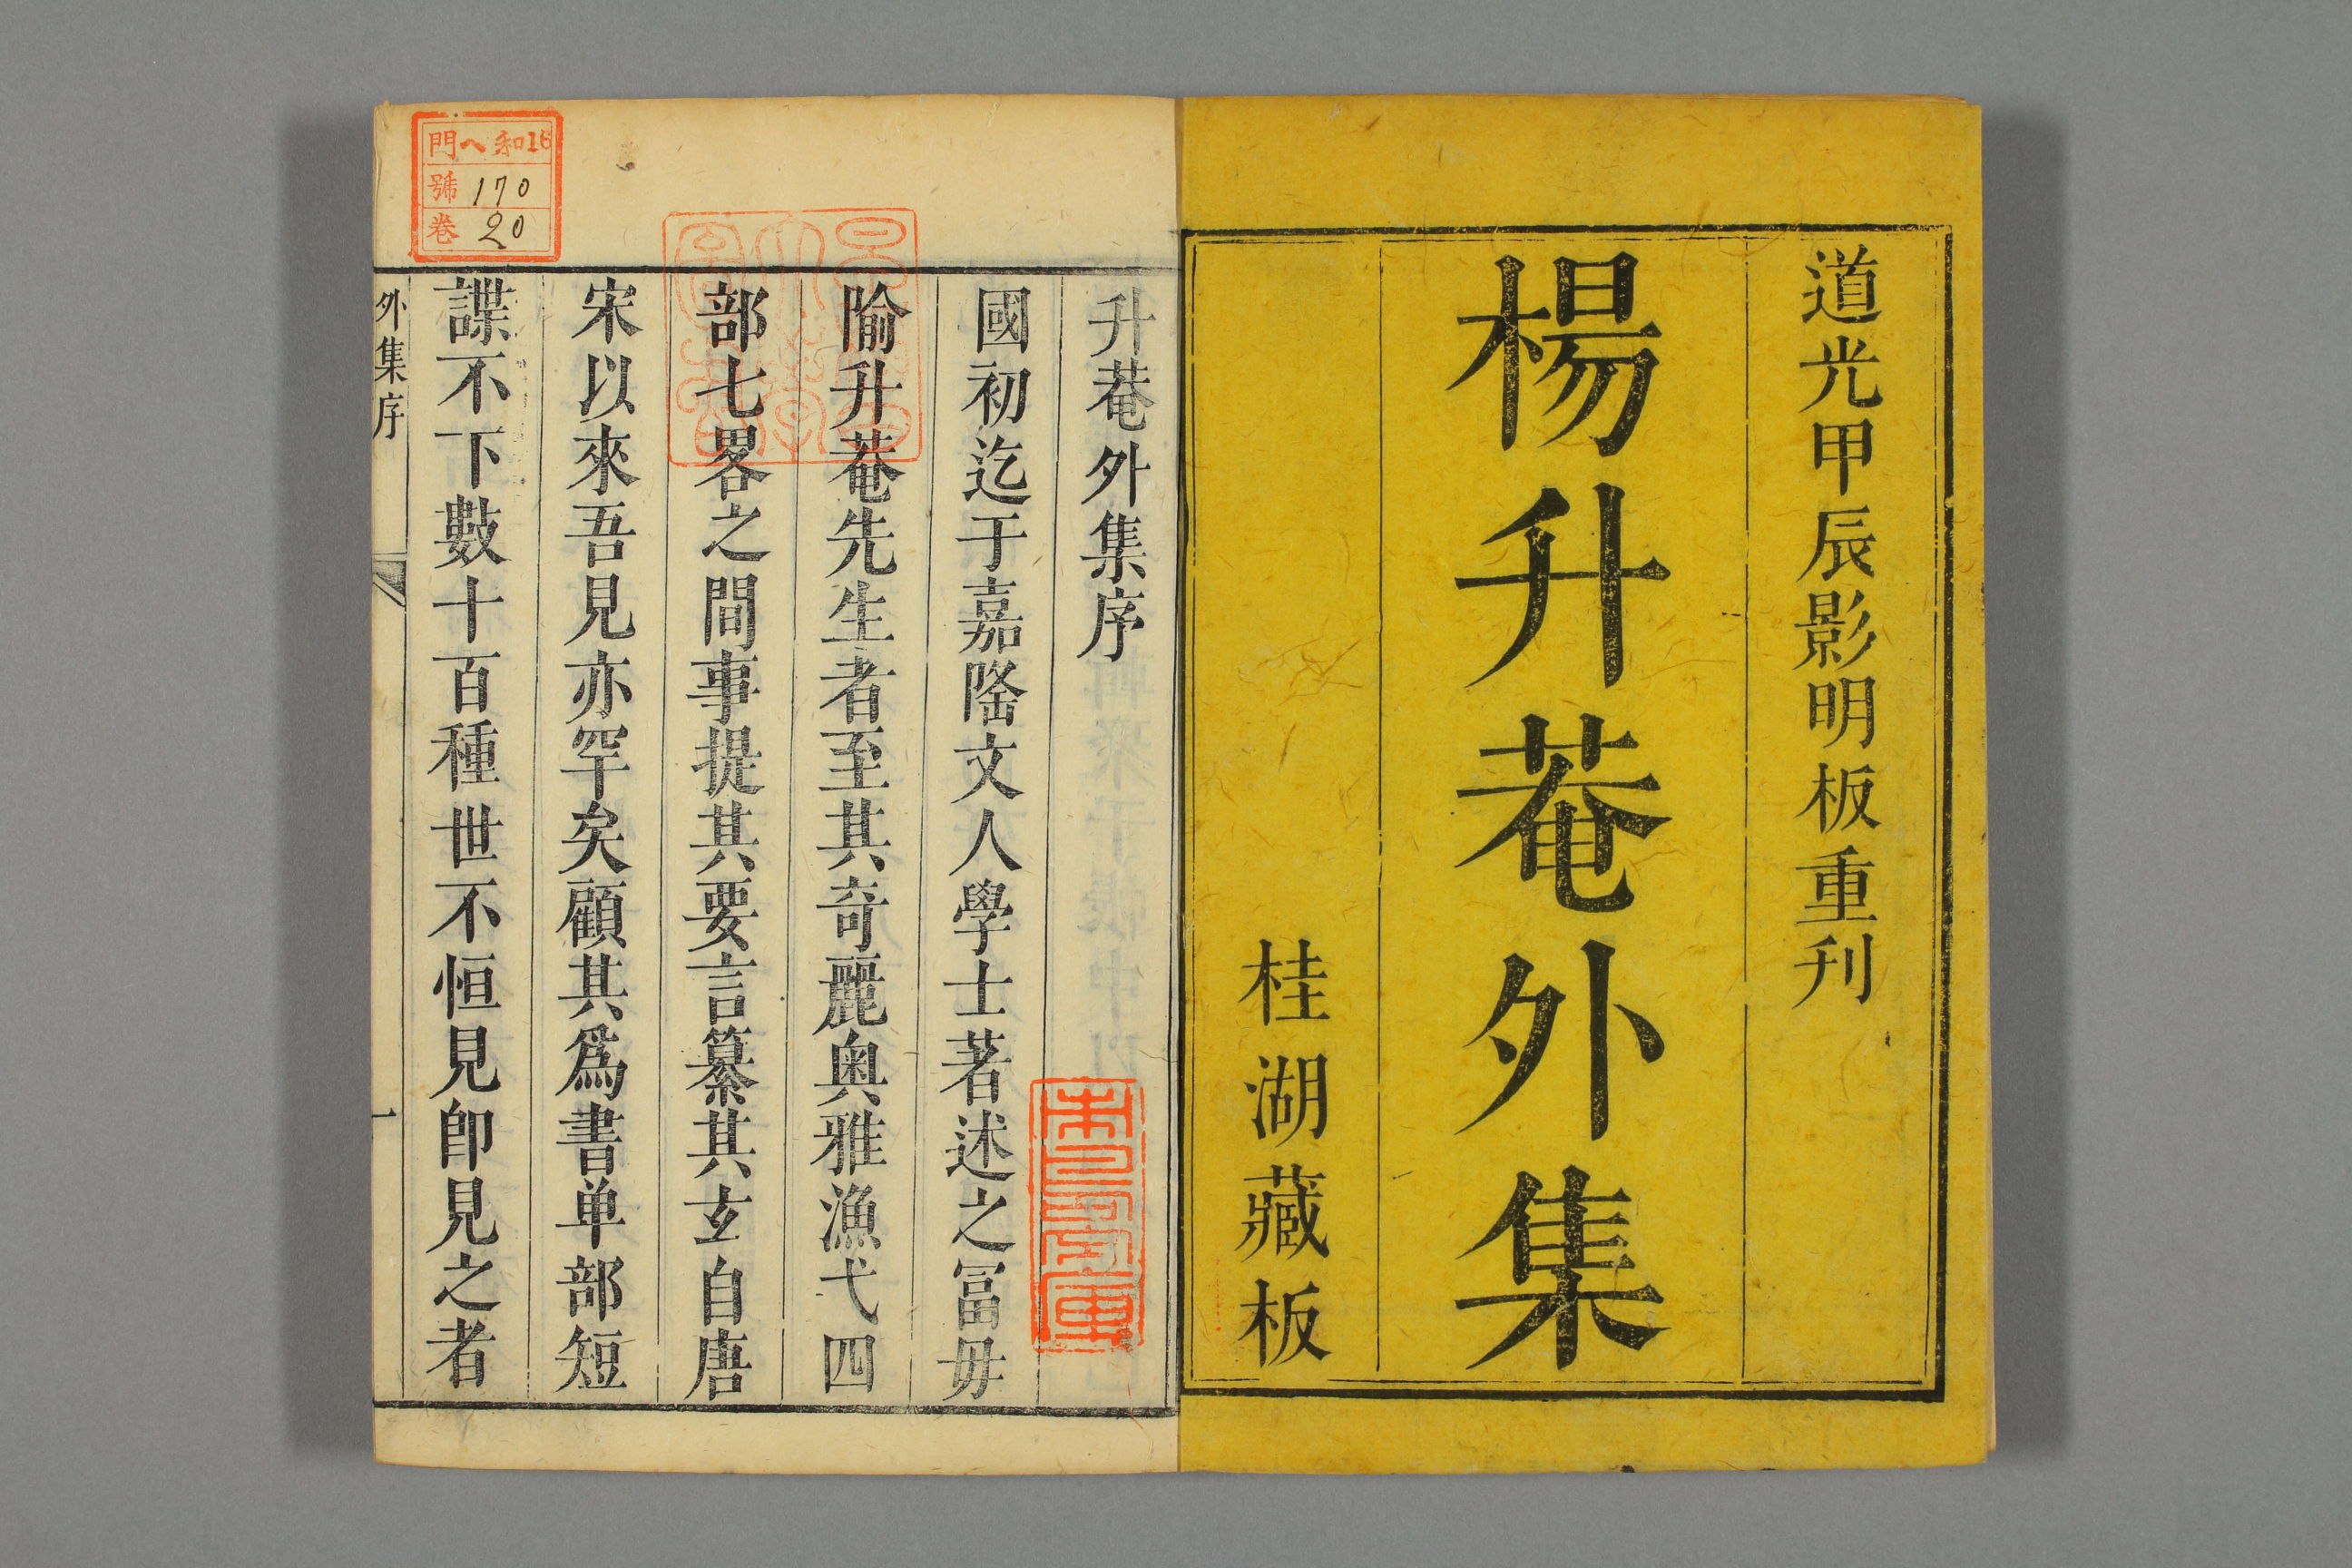 道光甲辰影明板重刊
楊升菴外集
桂湖藏板
升菴外集序
國初迄于嘉隆文人學士著述之冨毋
隃升菴先生者至其奇麗奥雅漁弋四
部七畧之間事提其要言纂其玄自唐
宋以來吾見亦罕矣顧其爲書单部短
諜不下數十百種世不恒見即見之者
外集序
一
門ヘ和16
號170
卷20